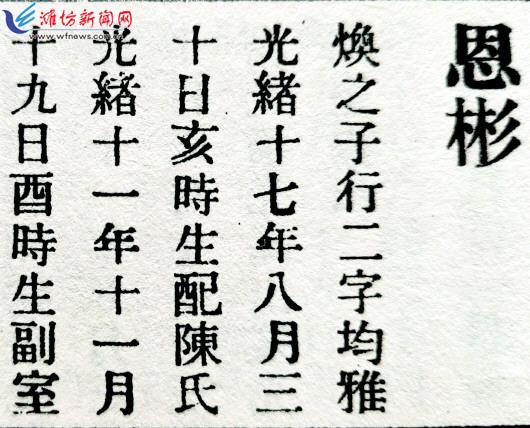 潍坊新闻网
www.wfnews.com.cn
恩彬
煥之子行二字均雅
光緒十七年八月三
十日亥時生配陳氏
光緒十一年十一月
十九日酉時生副室